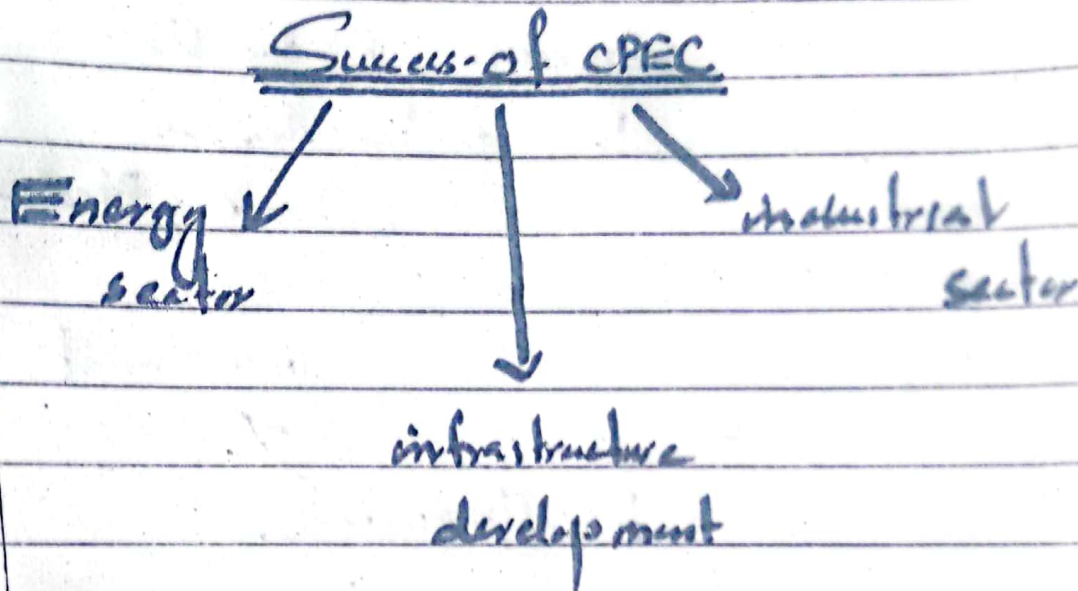 Success of CPEC
Energy
sector
industrial
sector
infrastructure
development